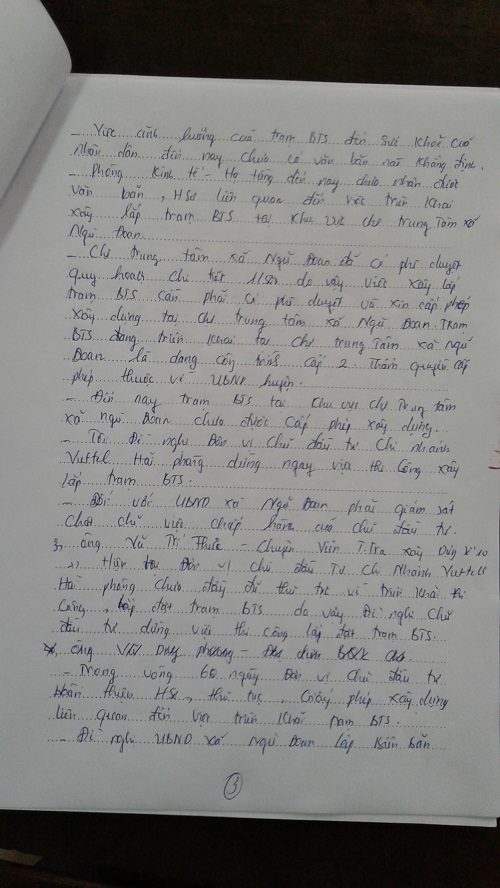 - Việc ảnh hưởng của trạm BTS đến sức khỏe của
nhân dân đến nay chưa có văn bản nào khẳng định.
- Phòng kinh tế - Hạ tầng đến nay chưa nhận được
văn bản, HSơ liên quan đến việc triển khai
xây lắp trạm BTS tại khu vực chợ trung tâm xã
Ngũ Đoan.
- Chợ trung tâm xã Ngũ Đoan đã có phê duyệt
quy hoạch chi tiết 1/500 do vậy việc xây lắp
trạm BTS cần phải có phê duyệt và xin cấp phép
xây dựng tại chợ trung tâm xã Ngũ Đoan. Trạm
BTS đang triển khai tại chợ trung tâm xã Ngũ
Đoan là dạng công trình cấp 2. Thẩm quyền cấp
phép thuộc về UBND huyện.
- Đến nay trạm BTS tại khu vực chợ Trung tâm
xã Ngũ Đoan chưa được cấp phép xây dựng.
- Tôi Đề nghị Đơn vị chủ đầu tư Chi nhánh
Viettel Hải phòng dừng ngay việc thi công xây
lắp trạm BTS.
- Đối với UBND xã Ngũ Đoan phải giám sát
chặt chẽ việc chấp hành của chủ đầu tư.
3, ông Vũ Trí Thức - Chuyên viên T.Tra xây dựng
Hiện tại Đơn vị chủ đầu tư Chi Nhánh Viettel
Hải phòng chưa đầy đủ thủ tục về triển khai thi
công, lắp đặt trạm BTS do vậy Đề nghị Chủ
đầu tư dừng việc thi công lắp đặt trạm BTS.
ông phương
- Trong vòng 60 ngày Đơn vị chủ đầu tư
hoàn thiện HSơ, thủ tục, Giấy phép xây dựng
liên quan đến việc triển khai trạm BTS.
- Đề nghị UBND xã Ngũ Đoan lập biên bản
3